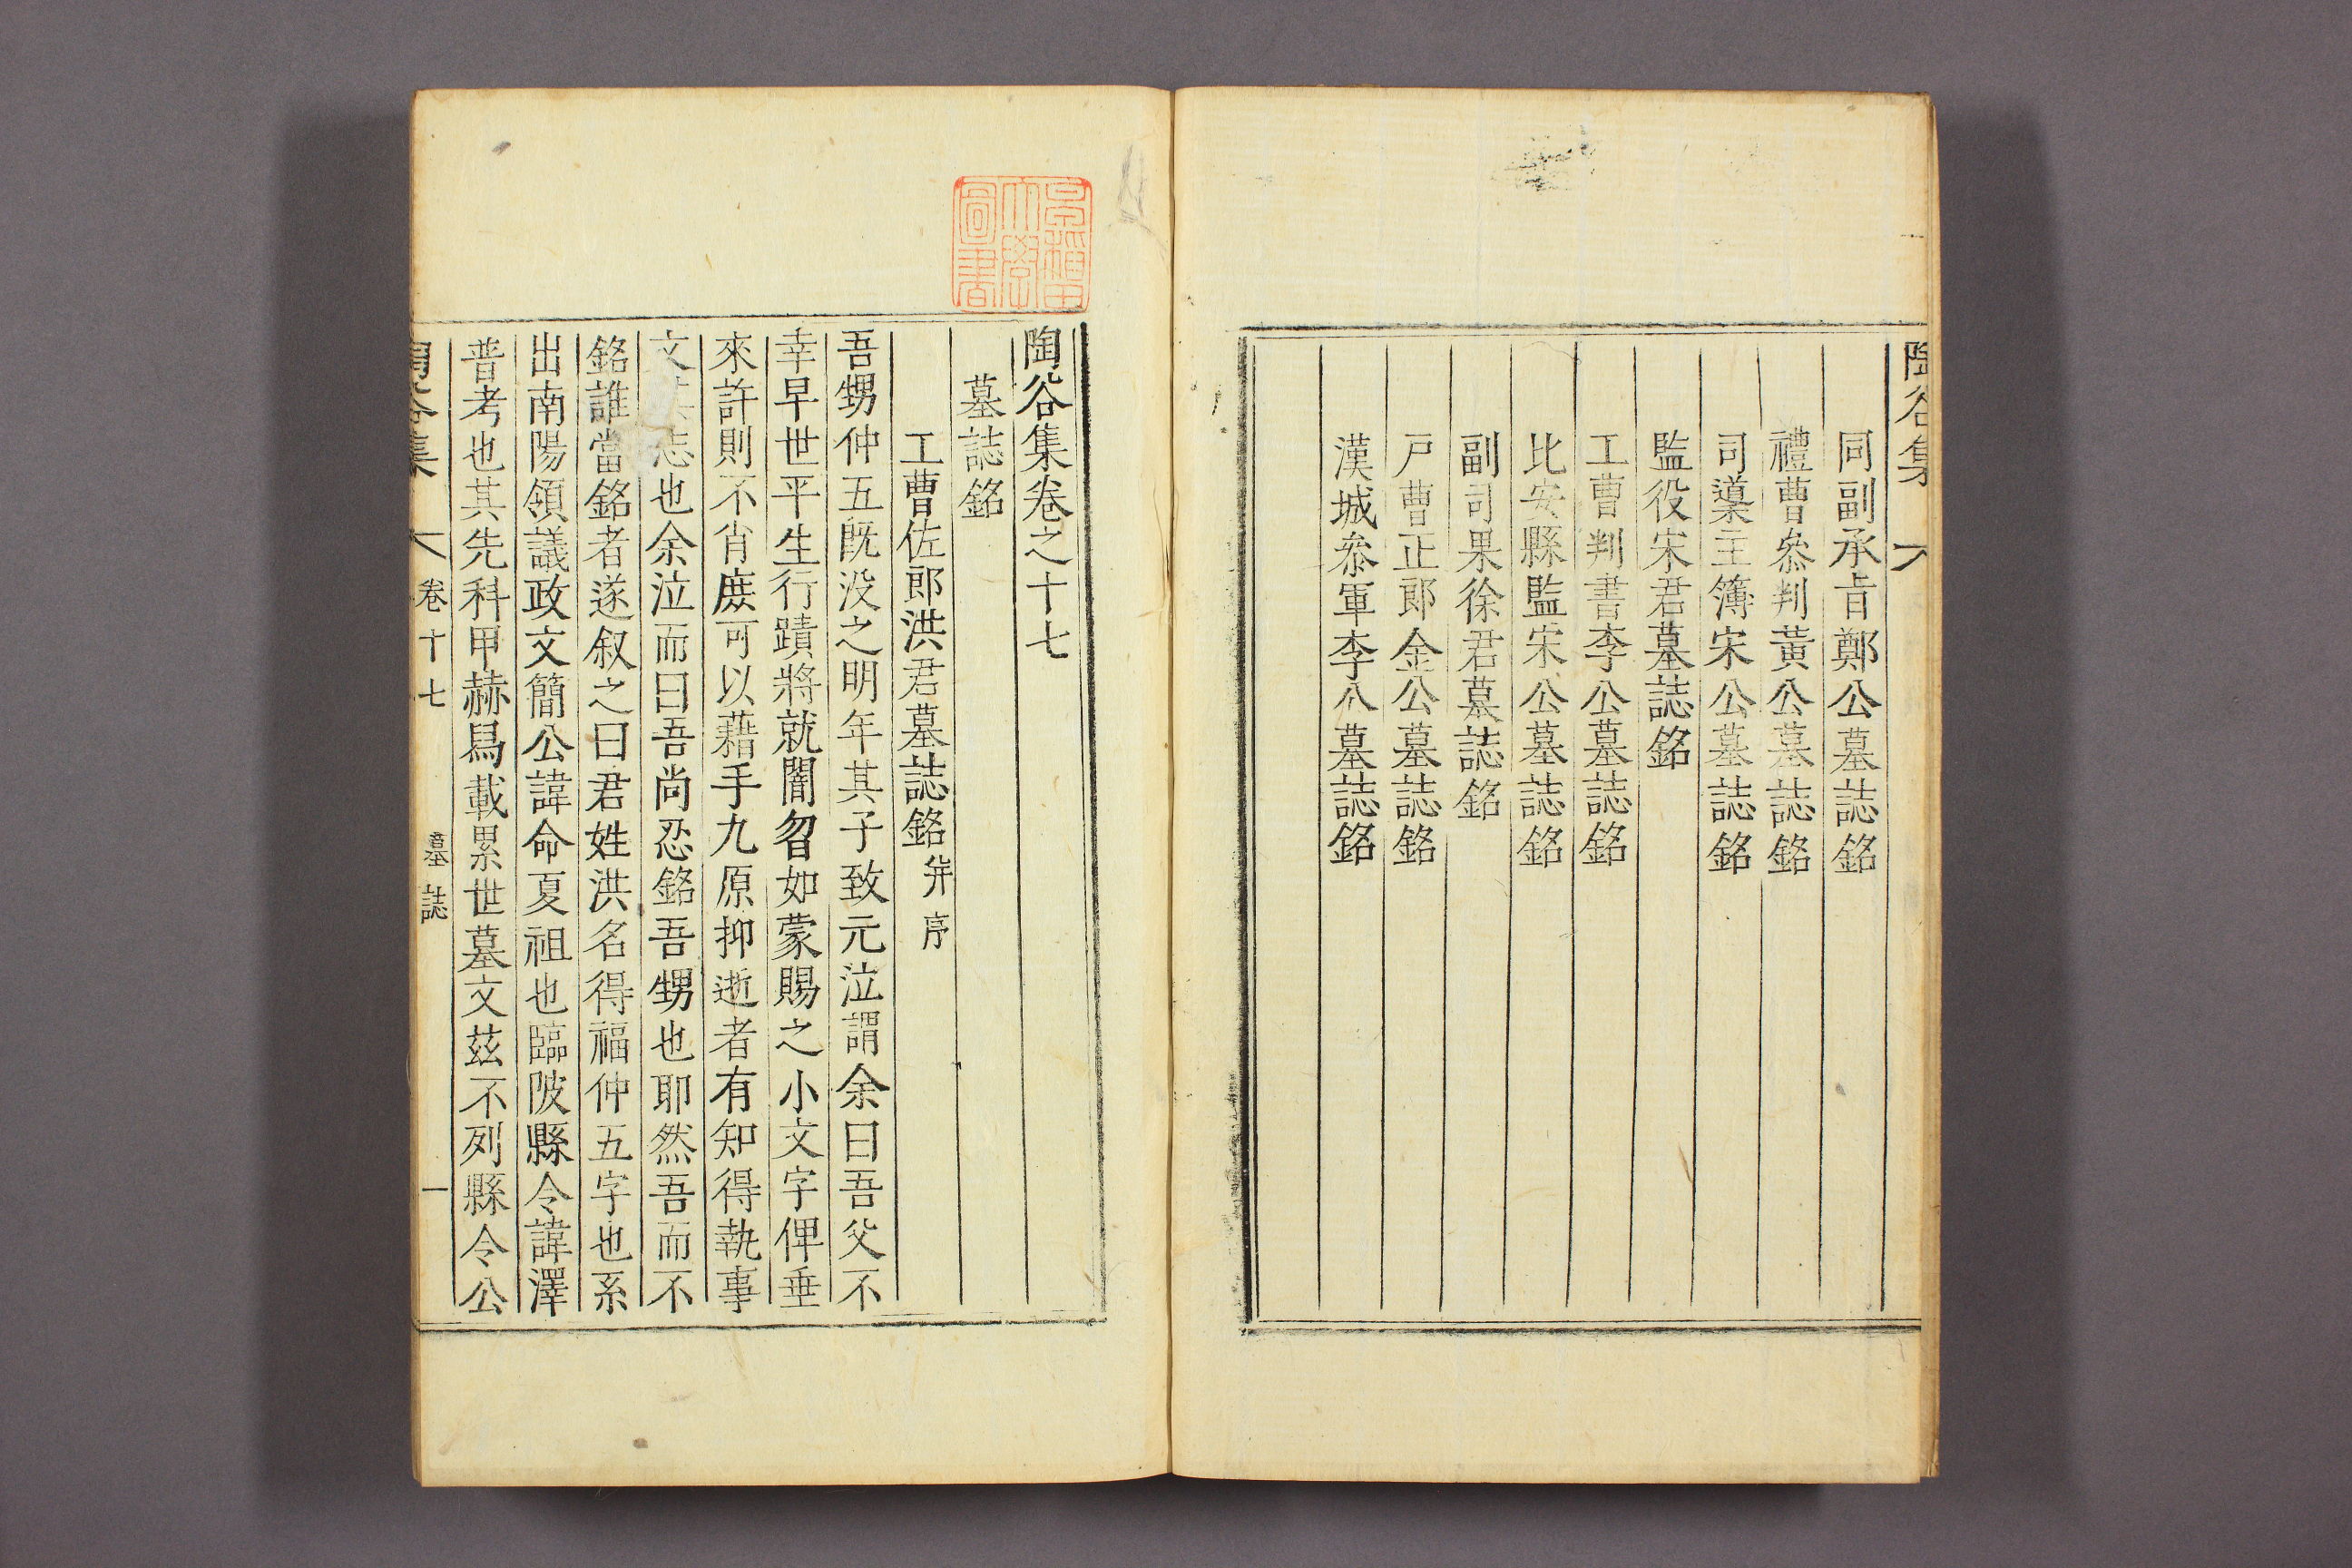 陶谷集
同副承旨鄭公墓誌銘
禮曹叅判黃公墓誌銘
司䆃主簿宋公墓誌銘
監役宋君墓誌銘
工曹判書李公墓誌銘
比安縣監宋公墓誌銘
副司果徐君墓誌銘
戶曹正郎金公墓誌銘
漢城叅軍李公墓誌銘
早稻田大學圖書
陶谷集卷之十七
墓誌銘
工曹佐郎洪君墓誌銘幷序
吾甥仲五旣没之明年其子致元泣謂余曰吾父不
幸早世平生行蹟將就闇曶如蒙賜之小文字俾垂
來許則不肖庻可以藉手九原抑逝者有知得執事
文志也余泣而曰吾尚忍銘吾甥也耶然吾而不
銘誰當銘者遂叙之曰君姓洪名得福仲五字也系
出南陽領議政文簡公諱命夏祖也臨陂縣令諱澤
普考也其先科甲赫舃載累世墓文茲不列縣令公
陶谷集 卷十七 墓誌 一